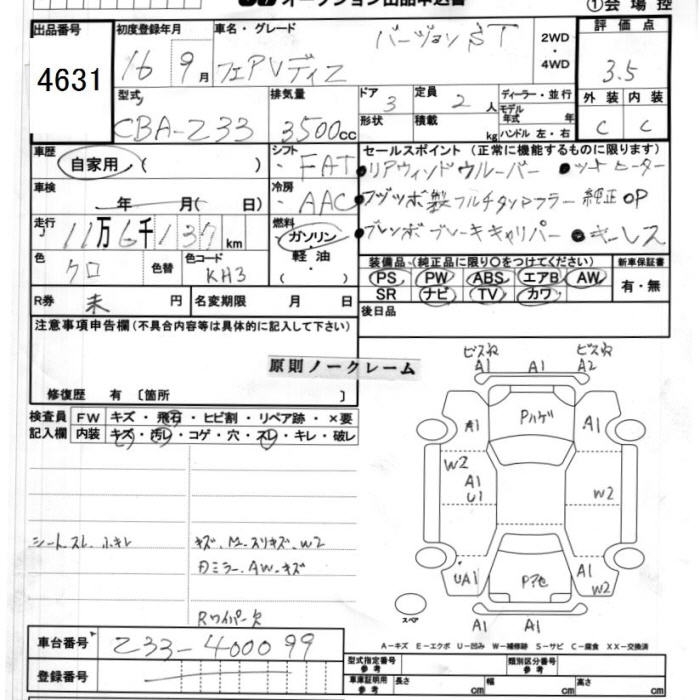 オークション出品申込書 ①会場控
出品番号 4631
初度登録年月 16 9月
車名・グレード フェアレディZ バージョンST
2WD・4WD
評価点 3.5
外装 C 内装 C
型式 CBA-Z33
排気量 3500cc
ドア 3
形状
定員 2人
積載 kg
ディーラー・並行
モデル年式 年式
ハンドル 左・右
車歴 自家用 ( )
シフト FAT
セールスポイント (正常に機能するものに限ります)
●リアウィンドウルーバー ●シートヒーター
車検 年 月( 日)
冷房 AAC
●フジツボ製フルチタンマフラー 純正OP
走行 11万6千137km
燃料 ガソリン・軽油・
●ブレンボブレーキキャリパー ●キーレス
色 クロ 色替 色コード KH3
装備品 (純正品に限り○をつけてください) 新車保証書
PS PW ABS エアB AW 有・無
SR ナビ TV カワ
R券 未 円 名変期限 月 日
後日品
注意事項申告欄 (不具合内容等は具体的に記入して下さい)
原則ノークレーム
修復歴 有 〔箇所 〕
検査員記入欄 FW キズ・飛石・ヒビ割・リペア跡・×要
内装 キズ・汚レ・コゲ・穴・スレ・キレ・破レ
シートスレ
キズ
ミラー、AW、キズ
Rワイパー欠
A1 A1 A2
A1 Pハゲ A1
W2
A1
U1
W2
UA1 A1
W2
スペア
A1 A1
A-キズ E-エクボ U-凹み W-補修跡 S-サビ C-腐食 XX-交換済
車台番号 Z33-400099
登録番号
型式指定番号 参考 類別区分番号 参考
車庫証明用 参考 長さ cm 幅 cm 高さ cm